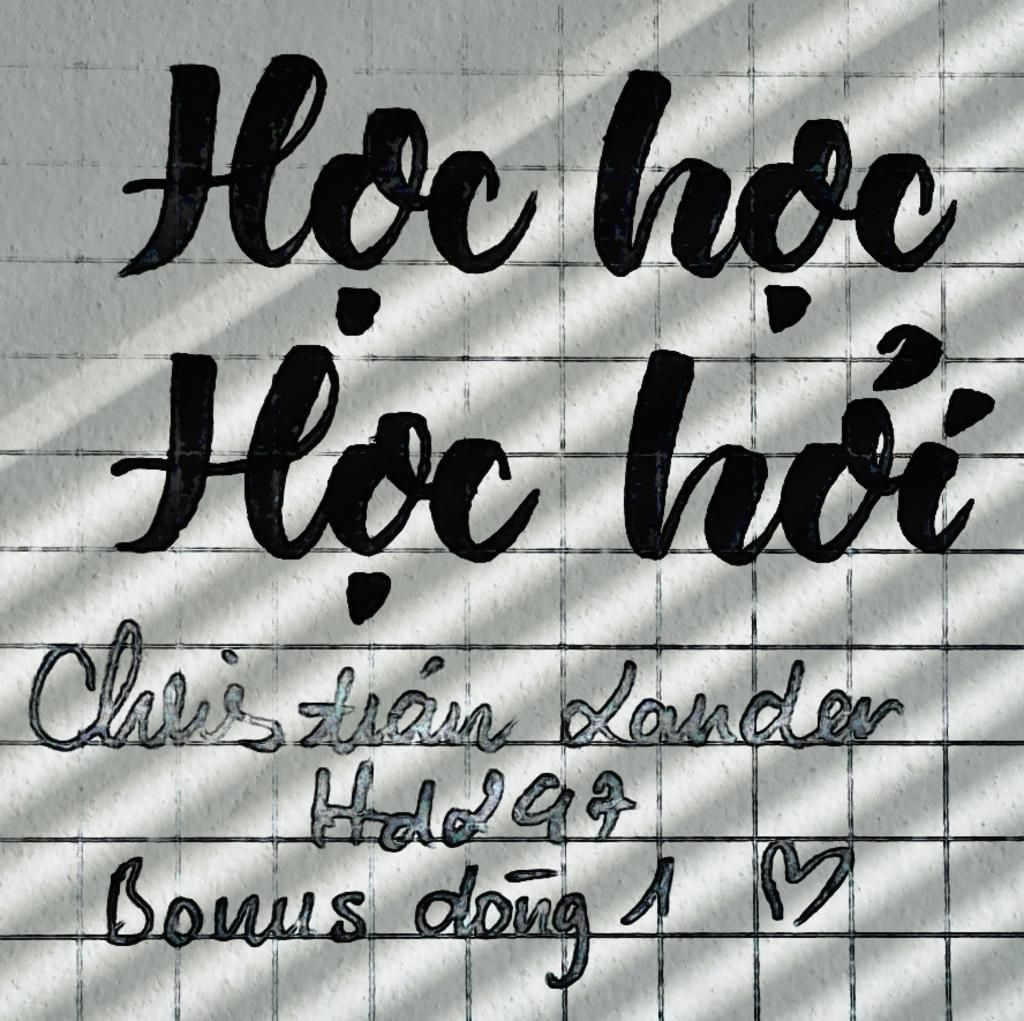 Học học
Học hỏi
Christián Lander
Hdd97
Bonus dōng 1 ♡